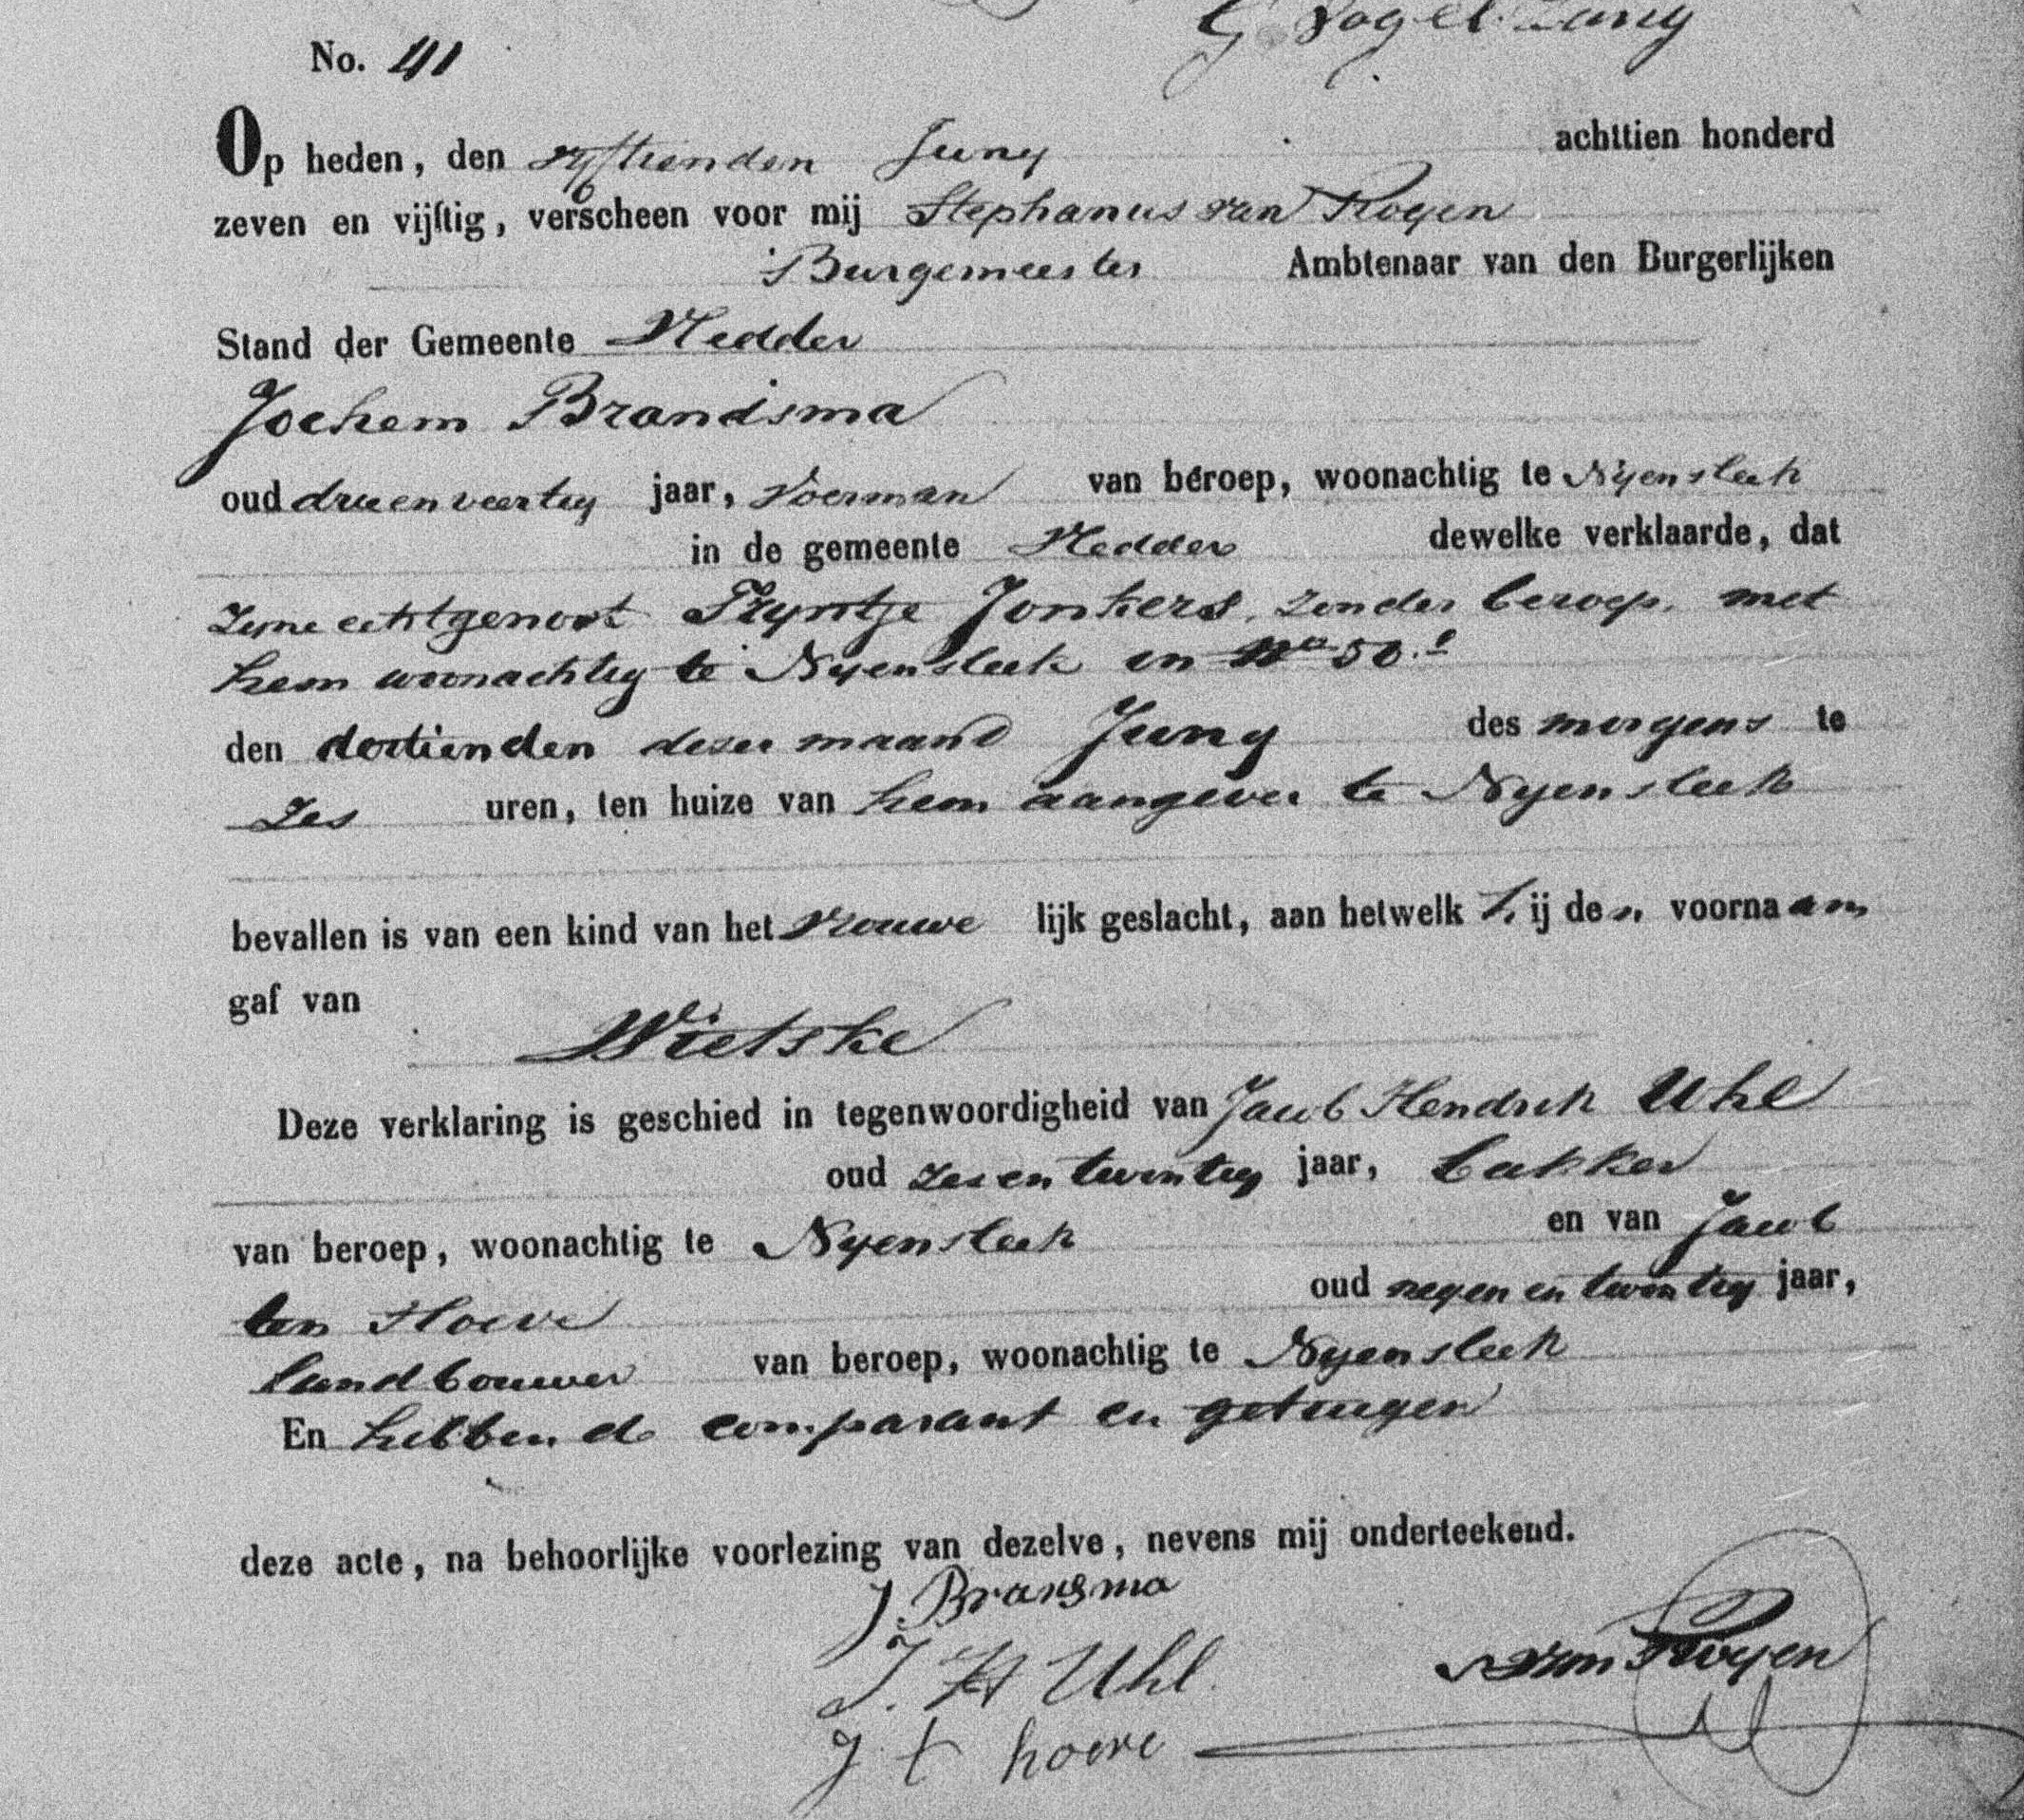 G Vogelzang
No. 41
Op heden, den vyftienden Juny achttien honderd
zeven en vijftig, verscheen voor mij Stephanus van Royen
Burgemeester Ambtenaar van den Burgerlijken
Stand der Gemeente Vledder
Jochem Brandsma
oud drieenveertig jaar, Voerman van beroep, woonachtig te Nyensleek
in de gemeente Vledder dewelke verklaarde, dat
zyne echtgenoot Tryntje Jonkers, zonder beroep, met
hem woonachtig te Nyensleek in No 50.
den dertienden dezer maand Juny des morgens te
zes uren, ten huize van hem aangever te Nyensleek
bevallen is van een kind van het vrouwe lijk geslacht, aan hetwelk hij den voornaam
gaf van
Wietske
Deze verklaring is geschied in tegenwoordigheid van Jacob Hendrik Uhl
oud zesentwintig jaar, bakker
van beroep, woonachtig te Nyensleek en van Jacob
ten Hoeve oud negen en twintig jaar,
landbouwer van beroep, woonachtig te Nyensleek
En hebben de comparant en getuigen
deze acte, na behoorlijke voorlezing van dezelve, nevens mij onderteekend.
J. Brangsma
J. H Uhl.
S van Royen
J t hoeve